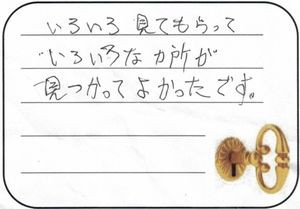 いろいろ見てもらって
いろいろなカ所が
見つかってよかったです。